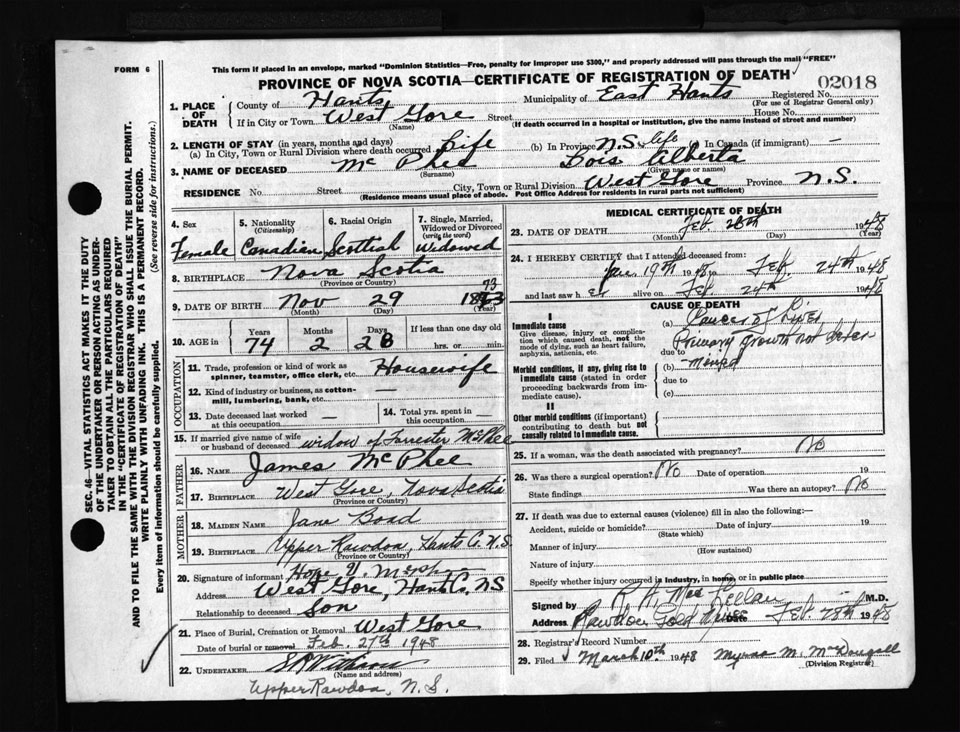 This form if placed in an envelope, marked "Dominion Statistics—Free, penalty for improper use $300," and properly addressed will pass through the mail "FREE"
FORM 6
PROVINCE OF NOVA SCOTIA—CERTIFICATE OF REGISTRATION OF DEATH
02018
1. PLACE OF DEATH
County of Hants
Municipality of East Hants
Registered No.
(For use of Registrar General only)
If in City or Town West Gore Street House No.
(Name)
(If death occurred in a hospital or institution, give the name instead of street and number)
2. LENGTH OF STAY (in years, months and days)
(a) In City, Town or Rural Division where death occurred Life (b) In Province N.S. Life (c) In Canada (if immigrant) —
3. NAME OF DECEASED McPhee Lois Alberta
(Surname) (Given name or names)
RESIDENCE No. Street City, Town or Rural Division West Gore Province N.S.
(Residence means usual place of abode. Post Office Address for Residents in rural parts not sufficient)
4. Sex Female
5. Nationality (Citizenship) Canadian
6. Racial Origin Scottish
7. Single, Married, Widowed or Divorced (write the word) Widowed
8. BIRTHPLACE Nova Scotia
(Province or Country)
9. DATE OF BIRTH Nov 29 1873
(Month) (Day) (Year)
10. AGE in
Years Months Days If less than one day old
74 2 28 hrs. or min.
OCCUPATION
11. Trade, profession or kind of work as spinner, teamster, office clerk, etc. Housewife
12. Kind of industry or business, as cotton-mill, lumbering, bank, etc.
13. Date deceased last worked at this occupation —
14. Total yrs. spent in this occupation —
15. If married give name of wife or husband of deceased widow of Forrester McPhee
FATHER
16. NAME James McPhee
17. BIRTHPLACE West Gore, Nova Scotia
(Province or Country)
MOTHER
18. MAIDEN NAME Jane Bond
19. BIRTHPLACE Upper Rawdon, Hants Co. N.S.
(Province or Country)
20. Signature of informant Hope
Address West Gore, Hants Co. NS
Relationship to deceased Son
21. Place of Burial, Cremation or Removal West Gore
Date of burial or removal Feb. 27th 1948
22. UNDERTAKER
(Name and address)
Upper Rawdon, N.S.
MEDICAL CERTIFICATE OF DEATH
23. DATE OF DEATH Feb. 26th 1948
(Month) (Day) (Year)
24. I HEREBY CERTIFY that I attended deceased from:
Jan. 19th 1948 to Feb. 24th 1948
and last saw her alive on Feb. 24th 1948
CAUSE OF DEATH
I
Immediate cause
Give disease, injury or complication which caused death, not the mode of dying, such as heart failure, asphyxia, asthenia, etc.
(a) Cancer of Liver
due to Primary growth not determined
Morbid conditions, if any, giving rise to immediate cause (stated in order proceeding backwards from immediate cause).
(b)
due to
(c)
II
Other morbid conditions (if important) contributing to death but not causally related to immediate cause.
25. If a woman, was the death associated with pregnancy? No
26. Was there a surgical operation? No Date of operation 19
State findings Was there an autopsy? No
27. If death was due to external causes (violence) fill in also the following:—
Accident, suicide or homicide? Date of injury 19
(State which)
Manner of injury
(How sustained)
Nature of injury
Specify whether injury occurred in Industry, in home, or in public place
Signed by R A MacLellan M.D.
Address Rawdon Gold Mines Date Feb. 28th 1948
28. Registrar's Record Number
29. Filed March 10th 1948 Myrna M. McDougall
(Division Registrar)
SEC. 46—VITAL STATISTICS ACT MAKES IT THE DUTY
OF THE UNDERTAKER OR PERSON ACTING AS UNDER-
TAKER TO OBTAIN ALL THE PARTICULARS REQUIRED
IN THE "CERTIFICATE OF REGISTRATION OF DEATH"
AND TO FILE THE SAME WITH THE DIVISION REGISTRAR WHO SHALL ISSUE THE BURIAL PERMIT.
WRITE PLAINLY WITH UNFADING INK. THIS IS A PERMANENT RECORD.
Every item of information should be carefully supplied. (See reverse side for instructions.)